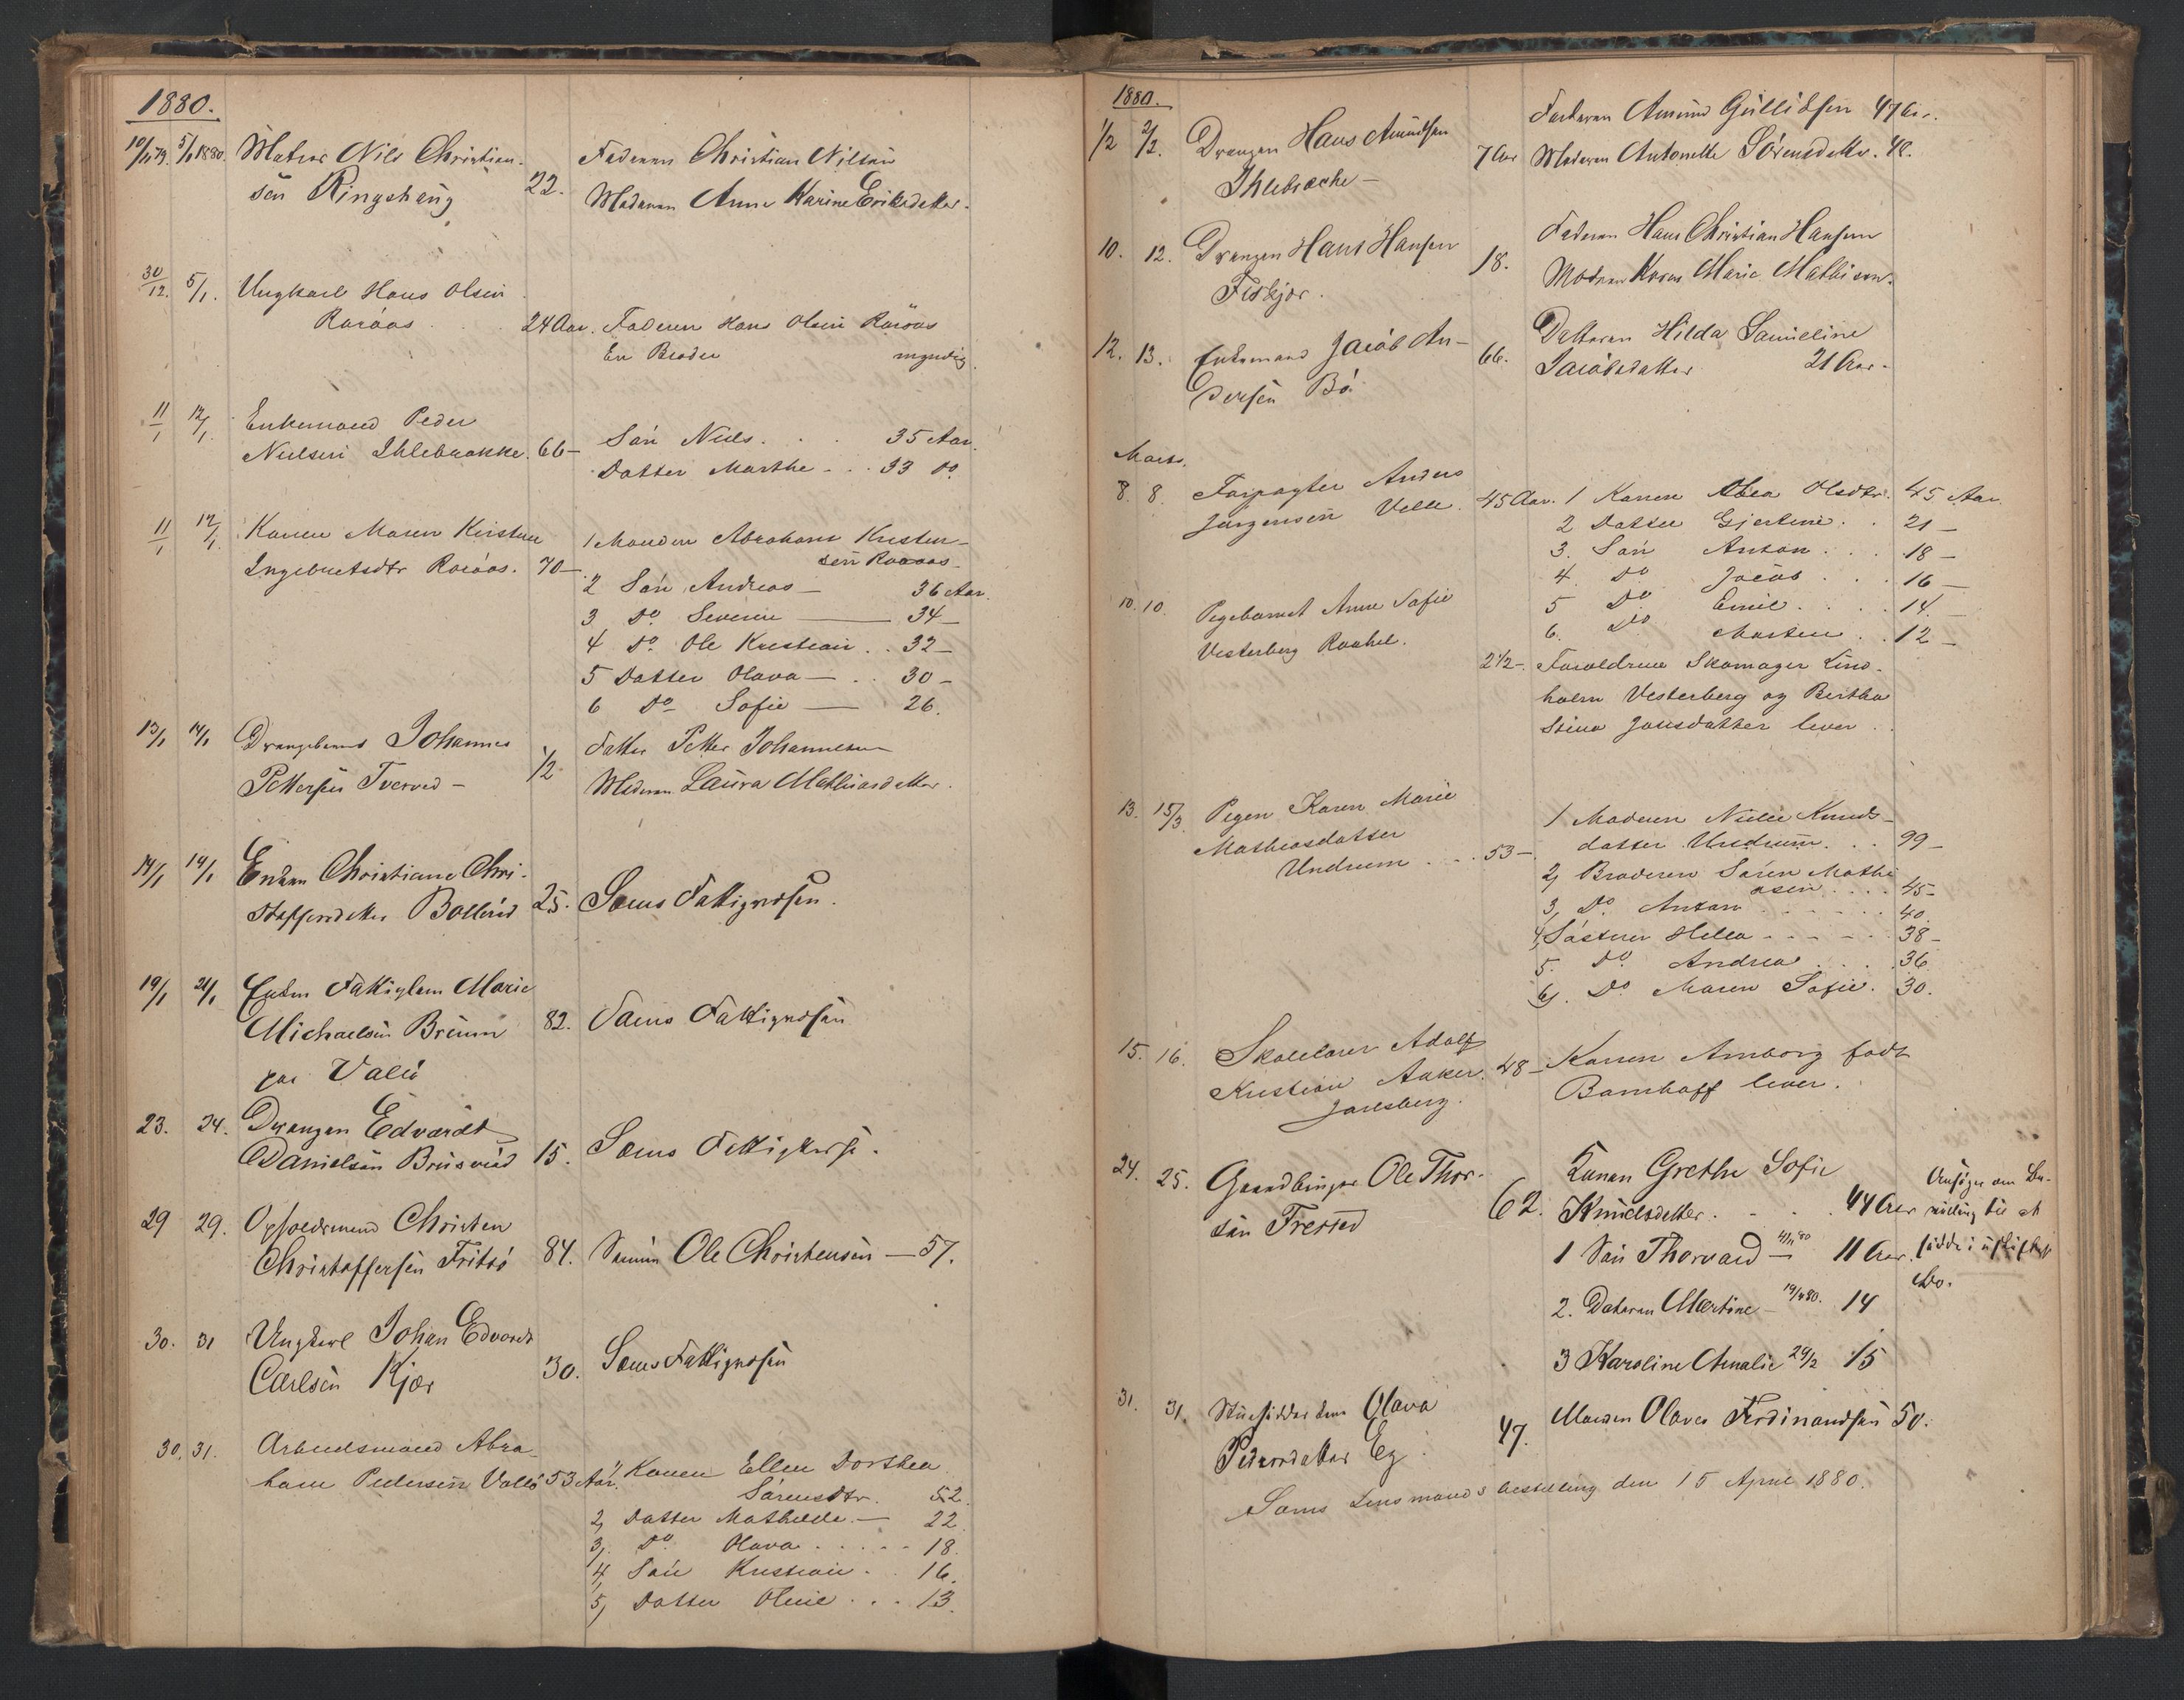 1880.
10/11 79. 5/1 1880. Matros Nils Christian-
sen Ringshaug 22.
Faderen Christian Nilsen
Moderen Anne Karine Eriksdatter.
30/12. 5/1. Ungkarl Hans Olsen
Raraas 24 Aar. Faderen Hans Olsen Raraas
En Broder myndig.
11/1 12/1. Enkemand Peder
Nielsen Ihlebrække. 66 –
Sön Niels. . . 35 Aar.
Datter Marthe . . 33 Do.
11/1 12/1. Konen Maren Kirstine
Ingebretsdtr Raraas. 70 –
1 Manden Abraham Kristen-
sen Raraas
2 Sön Andreas — 36 Aar.
3 Do. Severin — 34 –
4 Do. Ole Kristian . . 32 –
5 Datter Olava — . 30 –
6 Do Sofie — 26.
13/1 14/1 Drengebarnet Johannes
Pettersen Tverved – 1/2
Fatter Petter Johannesen
Moderen Laura Mathiasdatter.
14/1 14/1 Enken Christiane Chri-
stoffersdatter Bollerud 25. Sems Fattigvæsen.
19/1 21/1 Enken Fattiglem Marie
Michaelsen Bruun 82. Sems Fattigvæsen
paa Valø
23. 24. Drengen Edvardt
Danielsen Brusrød 15. Sems Fattigkasse.
29 29. Opholdsmand Christen
Christoffersen Fritsø 84. Sønnen Ole Christensen — 57.
30. 31 Ungkarl Johan Edvardt
Carlsen Kjær 30. Sems Fattigvæsen
30. 31. Arbeidsmand Abra-
ham Pedersen Vallø 53 Aar.
1, Konen Ellen Dorthea
Sörensdtr. 52.
2, Datter Mathilde. — 22.
3, Do Olava . . . . 18.
4, Sön Kristian . 16.
5, Datter Oline . . . 13.
1880.
1/2 2/2. Drengen Hans Amundsen
Ihlebække – 7 Aar
Faderen Amund Gullichsen 47 Aar.
Moderen Antonette Sørensdatter. 42.
10. 12. Drengen Hans Hansen
Feskjær. 18.
Faderen Hans Christian Hansen
Moderen Karen Marie Mathisen.
12. 13. Enkemand Jacob An-
dersen Bø. 66.
Datteren Hilda Samueline
Jacobsdatter 21 Aar.
Marts.
8. 8. Forpagter Anders
Jörgensen Velle. 45 Aar.
1 Konen Olea Olsdtr. 45 Aar.
2 Datter Gjertine. . 21 –
3. Sön Anton . . . 18 –
4. Do Jacob . . . 16 –
5 Do Emil. . . . 14. –
6. Do Morten . . 12 –
10. 10. Pigebarnet Anne Sofie
Vesterberg Raahel. 2 1/2 –.
Foreldrene Skomager Lind-
holm Vesterberg og Bertha
Stina Jonsdatter lever.
13. 15/3. Pigen Karen Marie
Mathiasdatter
Undrum . . . 53 –
1 Moderen Nielie Knuds-
datter Undrum. . . 99 –
2, Broderen Sören Mathi-
asen . . . . 45 –
3, Do. Anton . . . . . . 40.
4, Søsteren Hella . . . . . 38 –
5. Do Andrea . . . 36
6, Do Maren Sofie. 30.
15. 16. Skolelærer Adolf
Kristian Aaker. 48 –
Jarlsberg.
Konen Amborg født
Bamhoff lever.
24. 25. Gaardbruger Ole Thor-
sen Tressed 62.
Konen Grethe Sofie
Knudsdatter . . . . 44 Aar
1 Sön Thorvald — 4/11 80 11 Aar.
2. Dateren Martine — 19/4 80. 14
3 Karoline Amalie 29/2 15
Ansøger om Be-
villing til at
sidde i uskiftet
Bo.
31. 31. Huusfiddes kone Olava
Pedersdatter Eg 47.
Manden Olaves Ferdinandsen 50.
Sems Lensmands bestilling den 15 April 1880.